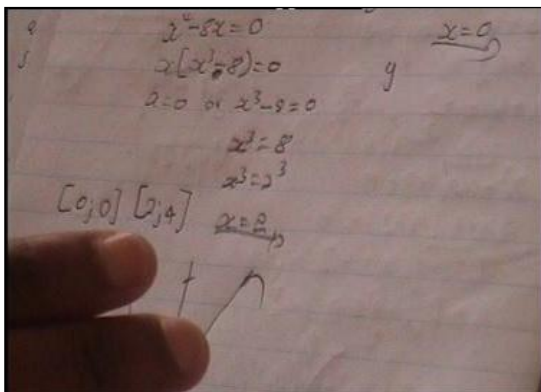 x⁴-8x=0
x=0
x[x³-8)=0
y
x=0 or x³-8=0
x³=8
x³=2³
[0;0] [2;4] x=2